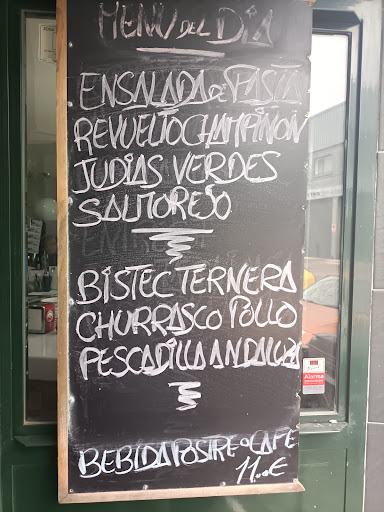 MENU DEL DIA
ENSALADA DE PASTA
REVUELTO CHAMPIÑON
JUDIAS VERDES
SALMOREJO
BISTEC TERNERA
CHURRASCO POLLO
PESCADILLA ANDALUZA
BEBIDA POSTRE O CAFE
11.00€
Alarma